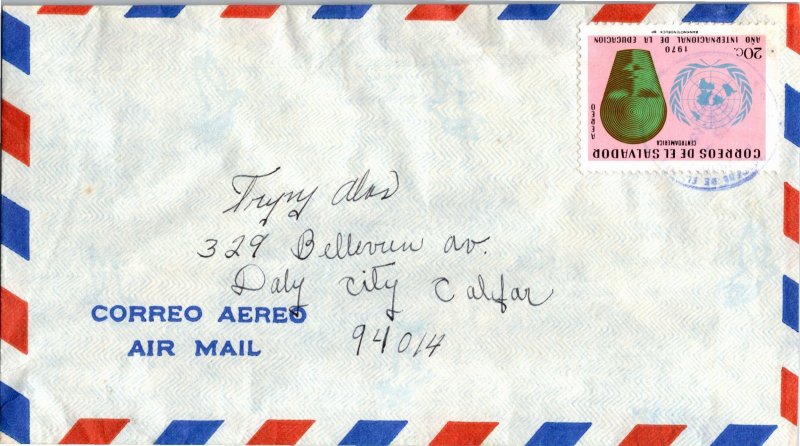 CORREOS DE EL SALVADOR
CENTROAMERICA
AEREO
20c.
1970
AÑO INTERNACIONAL DE LA EDUCACION
329 Bellevue av.
Daly City Calfar
94014
CORREO AEREO
AIR MAIL